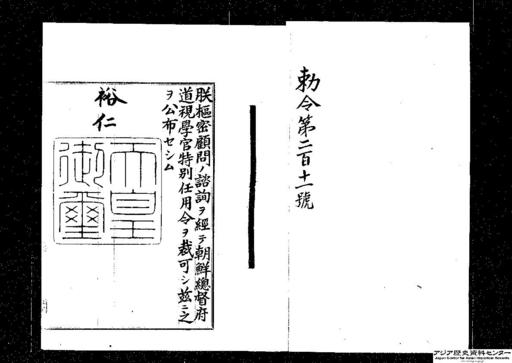 勅令第二百十一號
朕樞密顧問ノ諮詢ヲ經テ朝鮮總督府
道視學官特別任用令ヲ裁可シ茲ニ之
ヲ公布セシム
裕仁
天皇
御璽
アジア歴史資料センター
Japan Center for Asian Historical Records